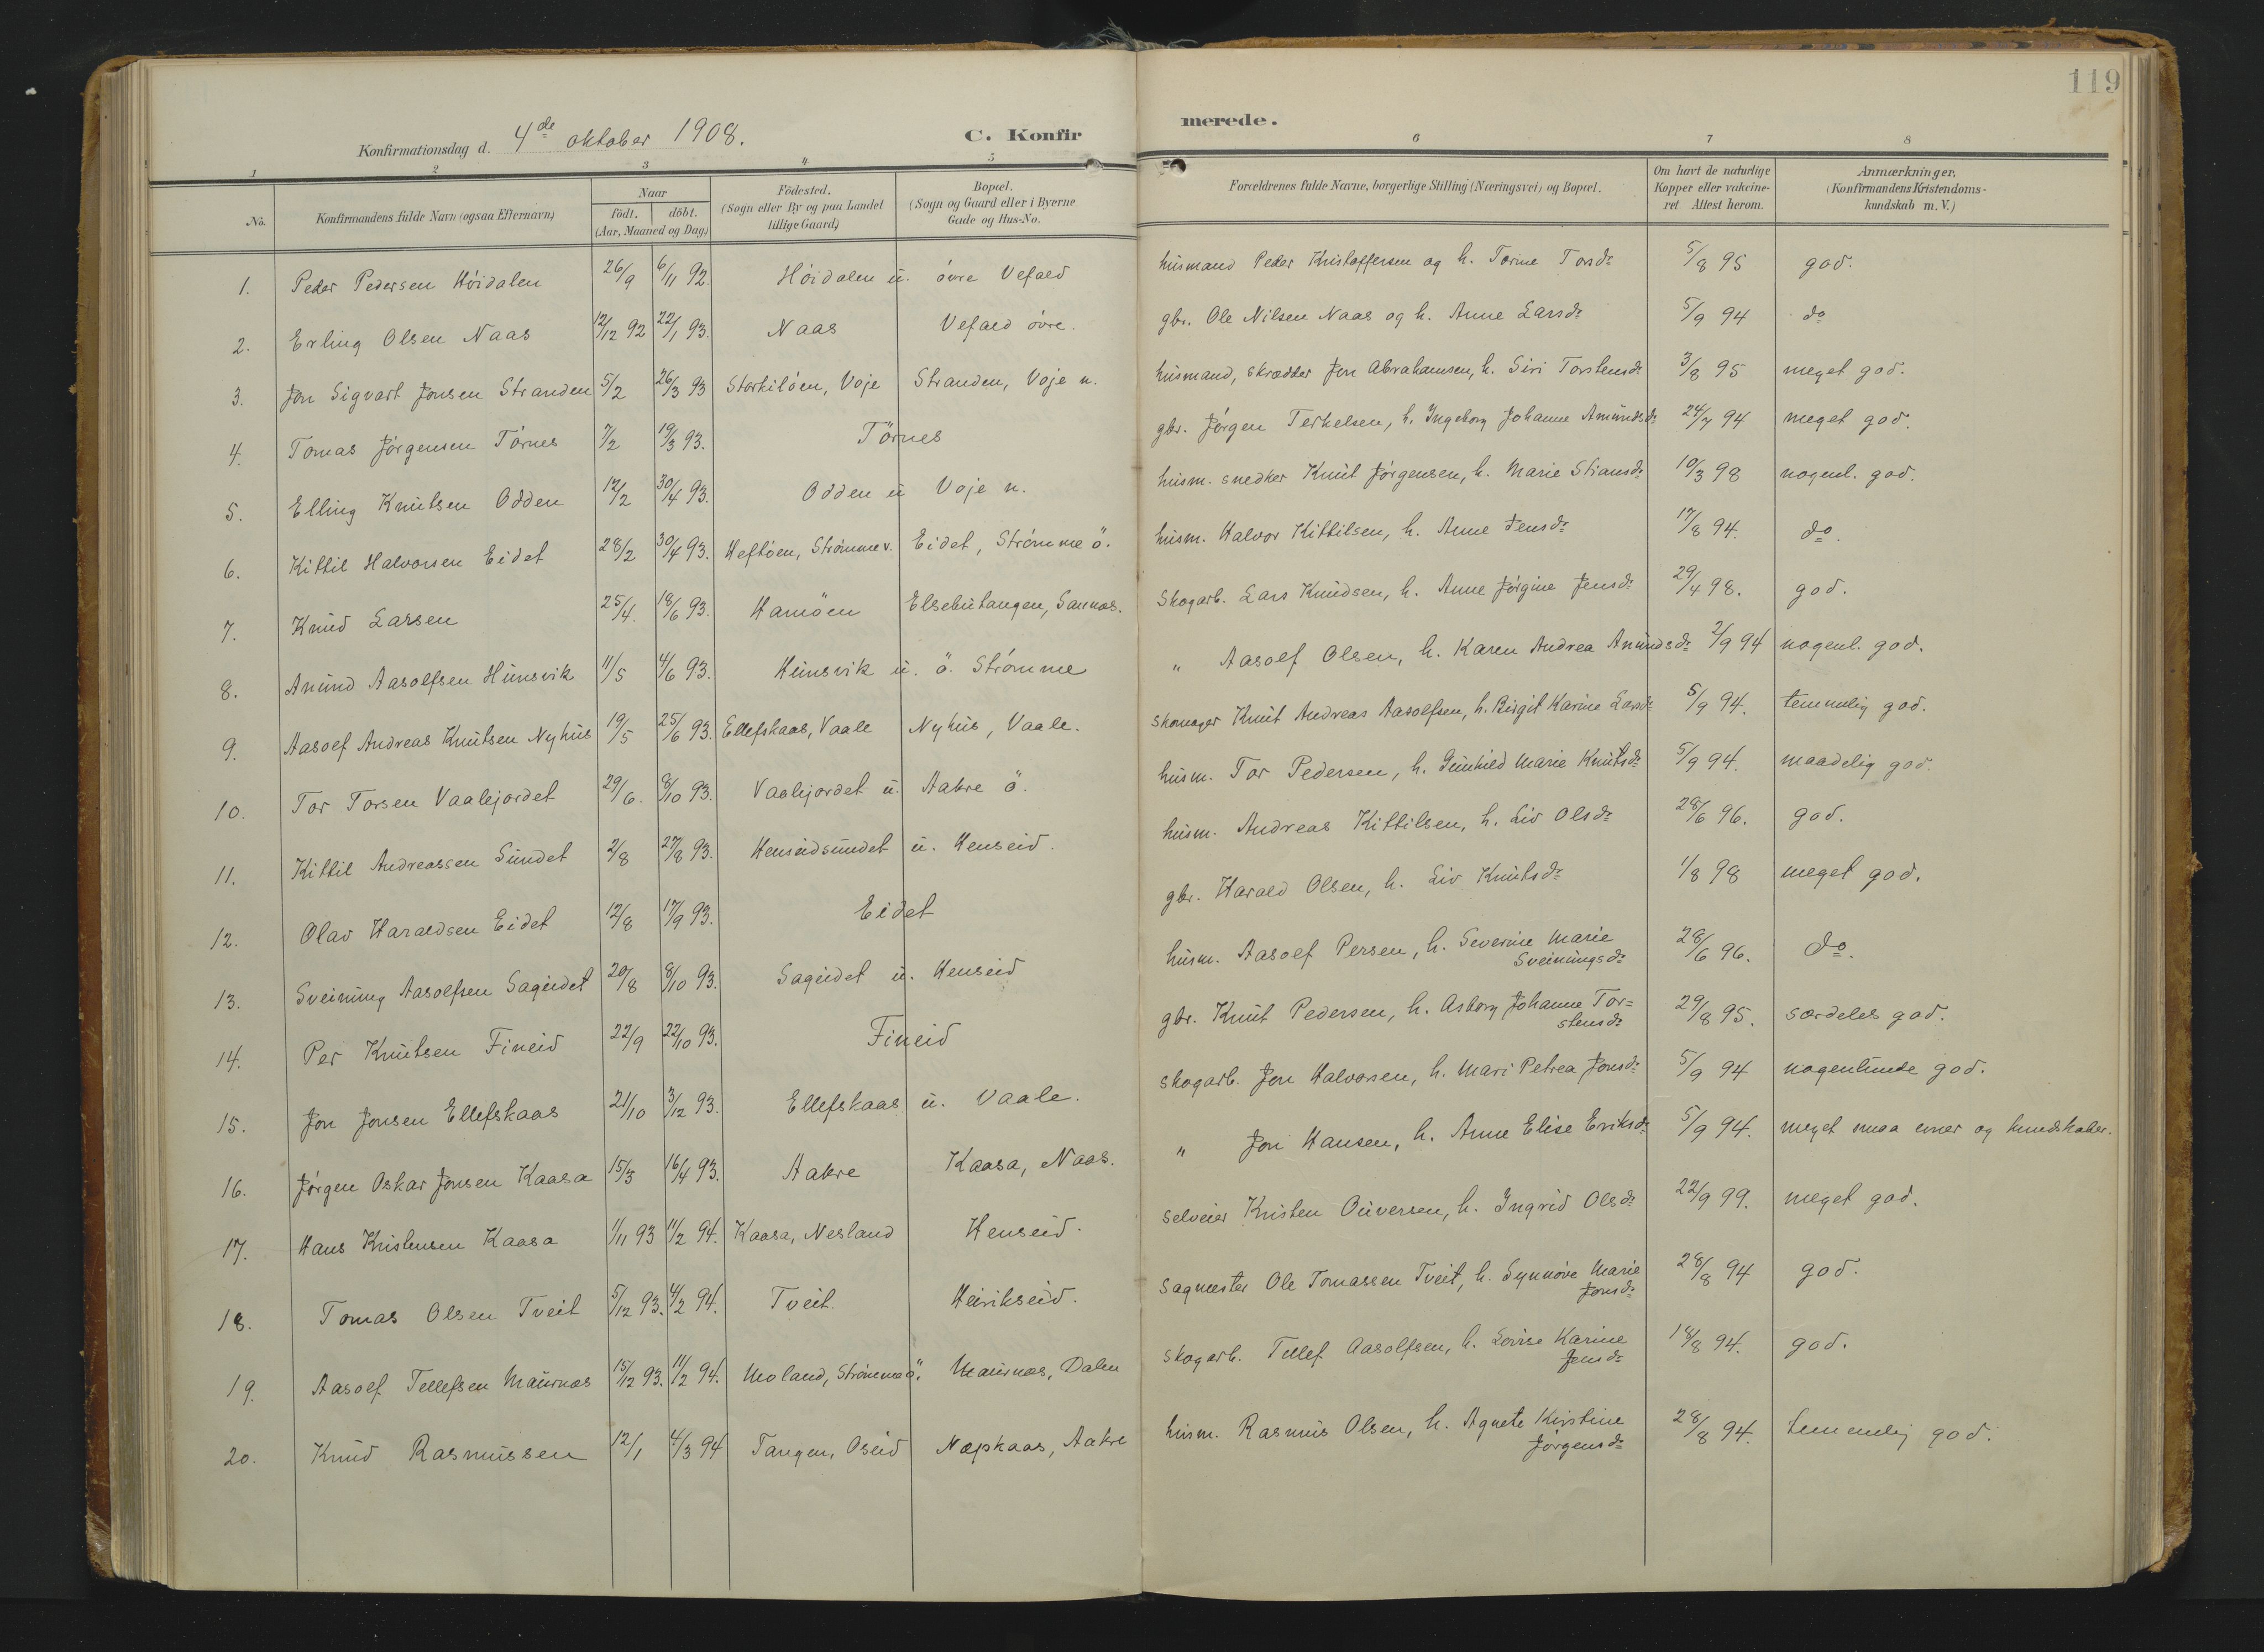 119
Konfirmationsdag d. 4de oktober 1908.
C. Konfirmerede.
1 2 3 4 5 6 7 8
No.
Konfirmandens fulde Navn (ogsaa Efternavn)
Naar
födt. döbt.
(Aar, Maaned og Dag)
Födested.
(Sogn eller By og paa Landet
tillige Gaard)
Bopæl.
(Sogn og Gaard eller i Byerne
Gade og Hus-No.
Forældrenes fulde Navne, borgerlige Stilling (Næringsvei) og Bopæl.
Om havt de naturlige
Kopper eller vakcine-
ret. Attest herom.
Anmærkninger.
(Konfirmandens Kristendoms-
kundskab m. V.)
1. Peder Pedersen Höidalen 26/9 6/11 92. Höidalen u. övre Vefald husmand Peder Kristoffersen og h. Torine Torsd: 5/8 95 god.
2. Erling Olsen Naas 12/12 92 22/1 93. Naas Vefald övre. gbr. Ole Nilsen Naas og h. Anne Larsd: 5/9 94 do
3. Jon Sigvart Jonsen Stranden 5/2 26/3 93 Storkilöen, Voje Stranden, Voje n. husmand, skrædder Jon Abrahamsen, h. Siri Torstensd: 3/8 95 meget god.
4. Tomas Jörgensen Törnes 7/2 19/3 93. Törnes gbr. Jörgen Terkelsen, h. Ingeborg Johanne Amundsd: 24/7 94 meget god.
5. Elling Knutsen Odden 12/2 30/4 93. Odden u Voje n. husm. snedker Knut Jörgensen, h. Marie Stiansd: 10/3 98 nogenl. god.
6. Kittil Halvorsen Eidet 28/2 30/4 93. Heftöen, Strömme v. Eidet, Strömme ö. husm. Halvor Kittilsen, h. Anne Jensd: 17/8 94. do.
7. Knud Larsen 25/4. 18/6 93. Hamöen Elsebutangen, Sannæs. Skogarb. Lars Knudsen, h. Anne Jörgine Jensd: 29/4 98. god.
8. Anund Aasolfsen Hunsvik 11/5 4/6 93. Hunsvik u. ö. Strömme " Aasolf Olsen, h. Karen Andrea Anundsd: 2/9 94 nogenl. god.
9. Aasolf Andreas Knutsen Nyhus 19/5 25/6 93. Ellefskaas, Vaale Nyhus, Vaale. Skomager Knut Andreas Aasolfsen, h. Birgit Karine Larsd: 5/9 94. temmelig god.
10. Tor Torsen Vaalejordet 29/6. 8/10 93. Vaalejordet u. Aakre ö. husm. Tor Pedersen, h. Gunhild Marie Knutsd: 5/9 94. maadelig god.
11. Kittil Andreassen Sundet 2/8 27/8 93. Henseidsundet u. Henseid. husm. Andreas Kittilsen, h. Liv Olsd: 28/6 96. god.
12. Olav Haraldsen Eidet 12/8 17/9 93. Eidet gbr. Harald Olsen, h. Liv Knutsd: 1/8 98 meget god.
13. Sveinung Aasolfsen Sageidet 20/8 8/10 93. Sageidet u. Henseid husm. Aasolf Persen, h. Severine Marie
Sveinungsd: 28/6 96. do.
14. Per Knutsen Fineid 22/9 22/10 93. Fineid gbr. Knut Pedersen, h. Asborg Johanne Tor=
stensd: 29/8 95. særdeles god.
15. Jon Jonsen Ellefskaas 21/10 3/12 93. Ellefskaas u. Vaale. skogarb. Jon Halvorsen, h. Mari Petrea Jonsd: 5/9 94 nogenlunde god.
16. Jörgen Oskar Jonsen Kaasa 15/3 16/4 93. Aakre Kaasa, Naas. " Jon Hansen, h. Anne Elise Eriksd: 5/9 94. meget smaa evner og kundskaber.
17. Hans Kristensen Kaasa 1/11 93 11/2 94. Kaasa, Nesland Henseid. selveier Kristen Ouversen, h. Ingrid Olsd: 22/9 99. meget god.
18. Tomas Olsen Tveit 5/12 93. 4/2 94. Tveit. Heirikseid. Sagmester Ole Tomassen Tveit, h. Synnöve Marie
Jonsd: 28/8 94 god.
19. Aasolf Tellefsen Maurnæs 15/12 93. 11/2 94. Moland, Strömme ö. Maurnæs, Dalen skogarb. Tellef Aasolfsen, h. Lovise Karine
Jensd: 18/8 94. god.
20. Knud Rasmussen 12/1 4/3 94 Tangen, Oseid Næpkaas, Aakre husm. Rasmus Olsen, h. Agnete Kirstine
Jörgensd: 28/8 94. temmelig god.